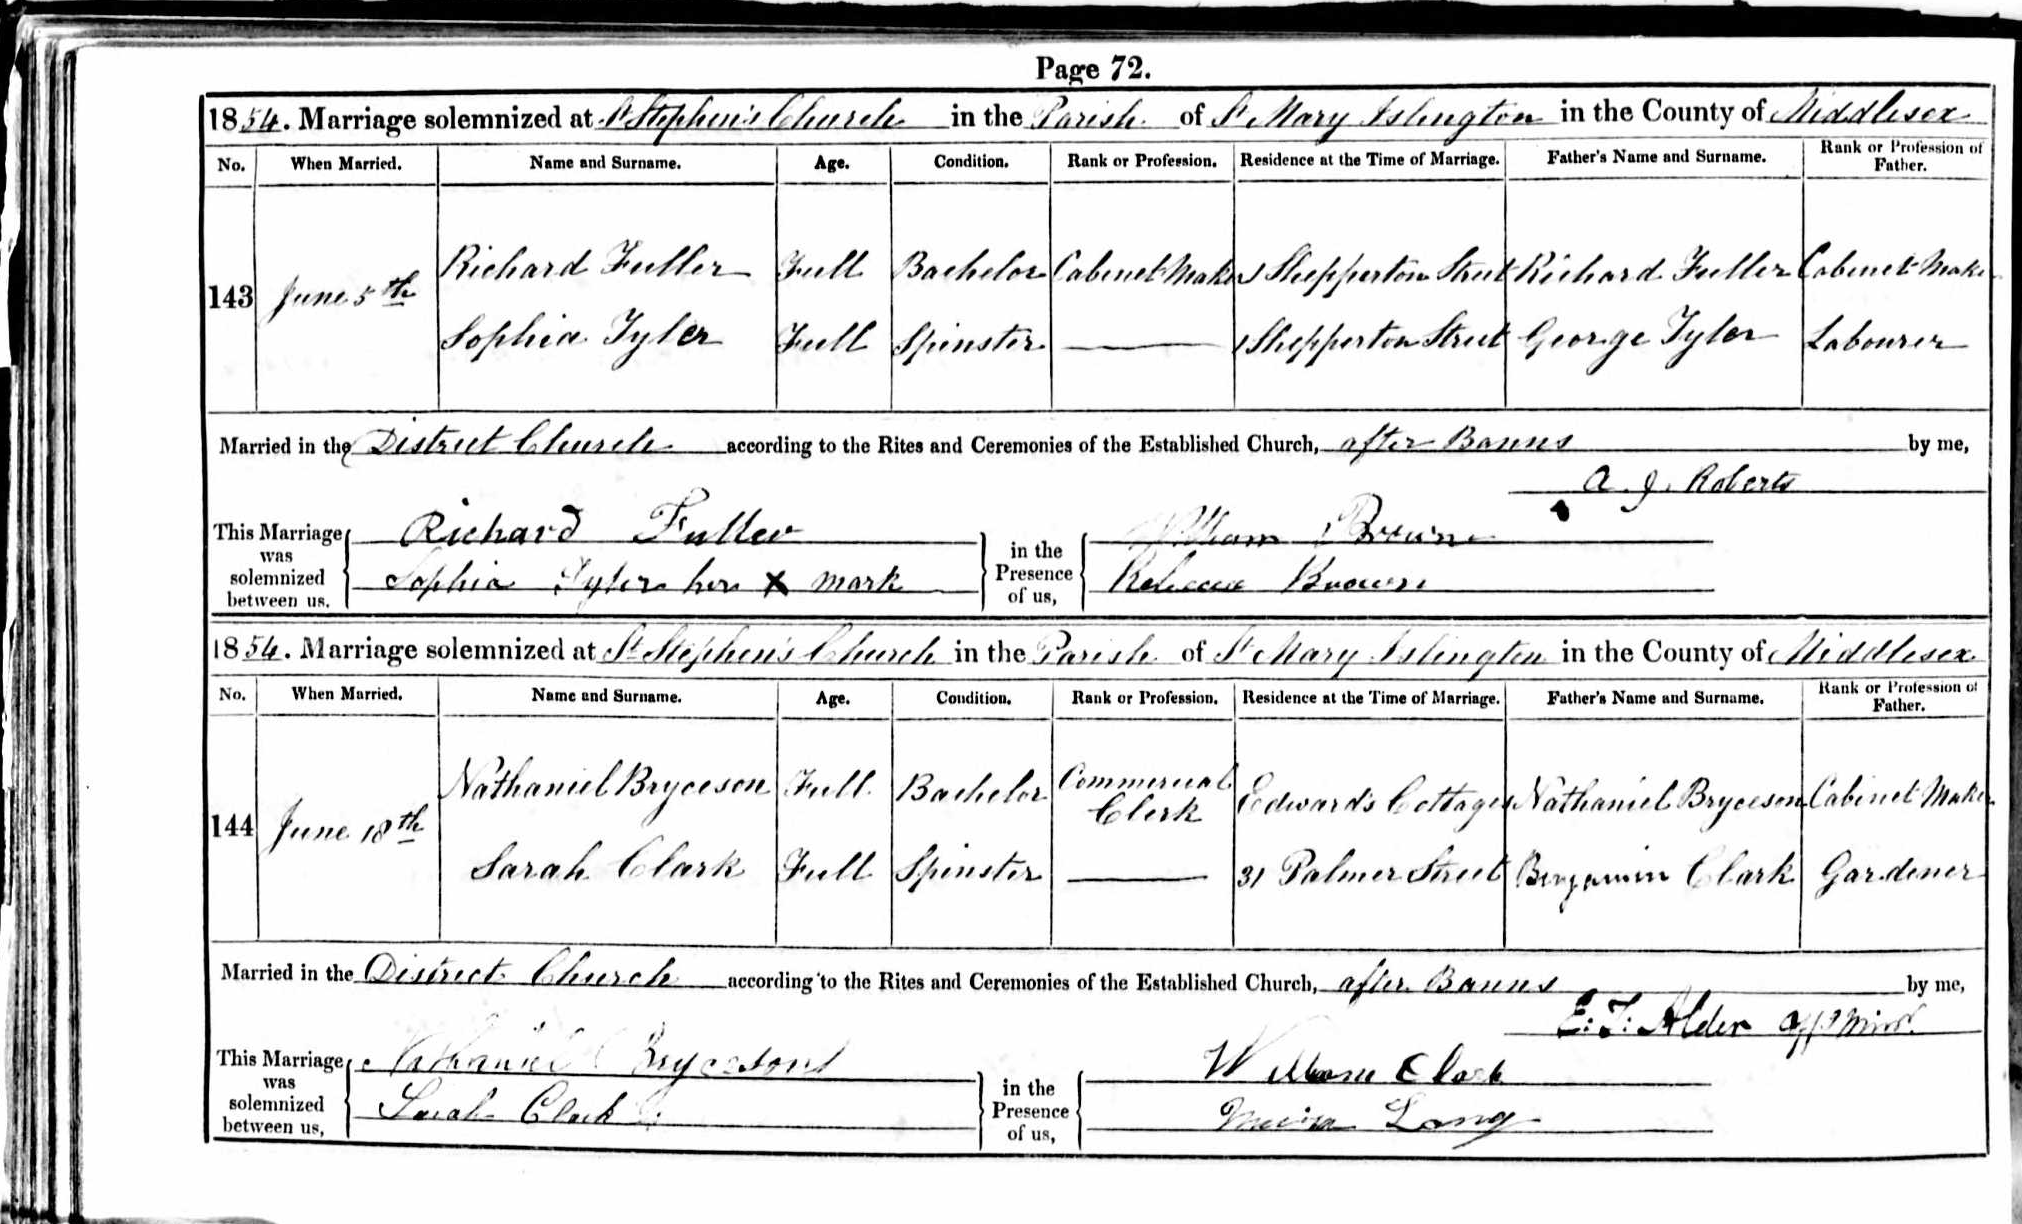 Page 72.
1854. Marriage solemnized at St Stephen's Church in the Parish of St Mary Islington in the County of Middlesex
No. When Married. Name and Surname. Age. Condition. Rank or Profession. Residence at the Time of Marriage. Father's Name and Surname. Rank or Profession of Father.
143 June 5th Richard Fuller Full Bachelor Cabinet Maker 1 Shepperton Street Richard Fuller Cabinet Maker
Sophia Tyler Full Spinster 1 Shepperton Street George Tyler Labourer
Married in the District Church according to the Rites and Ceremonies of the Established Church, after Banns by me,
A. J. Roberts
This Marriage was solemnized between us, Richard Fuller in the Presence of us, William Brown
Sophia Tyler her X mark Rebecca Brown
1854. Marriage solemnized at St Stephen's Church in the Parish of St Mary Islington in the County of Middlesex
No. When Married. Name and Surname. Age. Condition. Rank or Profession. Residence at the Time of Marriage. Father's Name and Surname. Rank or Profession of Father.
144 June 18th Nathaniel Bryceson Full Bachelor Commercial Clerk Edward's Cottages Nathaniel Bryceson Cabinet Maker
Sarah Clark Full Spinster 31 Palmer Street Benjamin Clark Gardener
Married in the District Church according to the Rites and Ceremonies of the Established Church, after Banns by me,
E: T: Alder
This Marriage was solemnized between us, Nathaniel Bryceson in the Presence of us, William Clark
Sarah Clark Lang